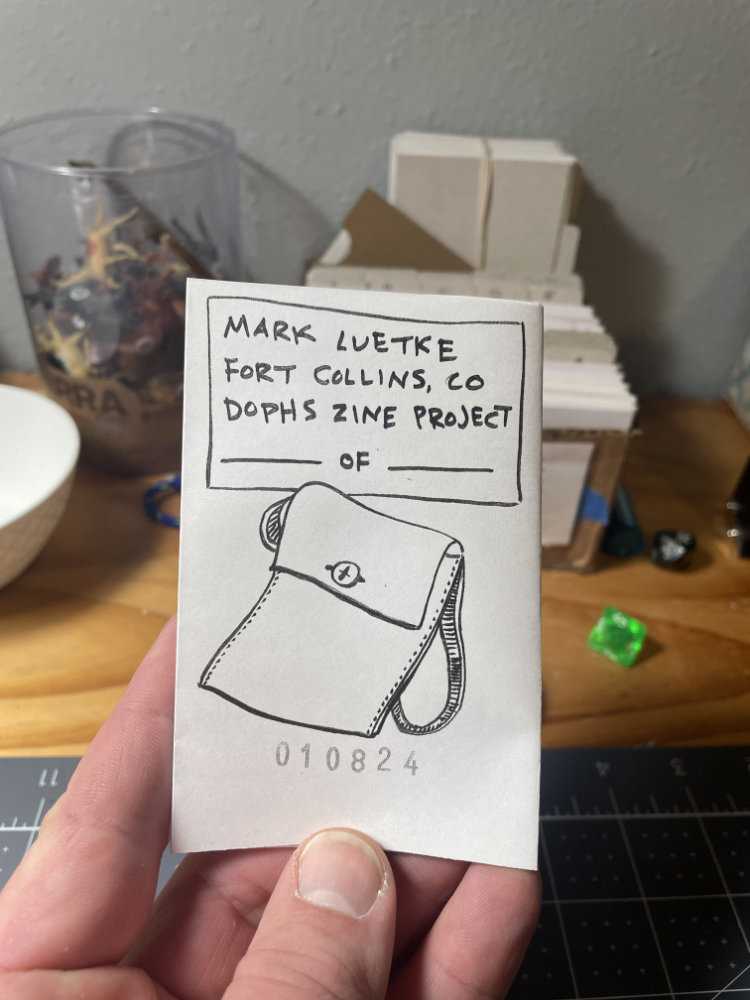 MARK LUETKE
FORT COLLINS, CO
DOPHS ZINE PROJECT
____ OF ____
010824
11
4
3